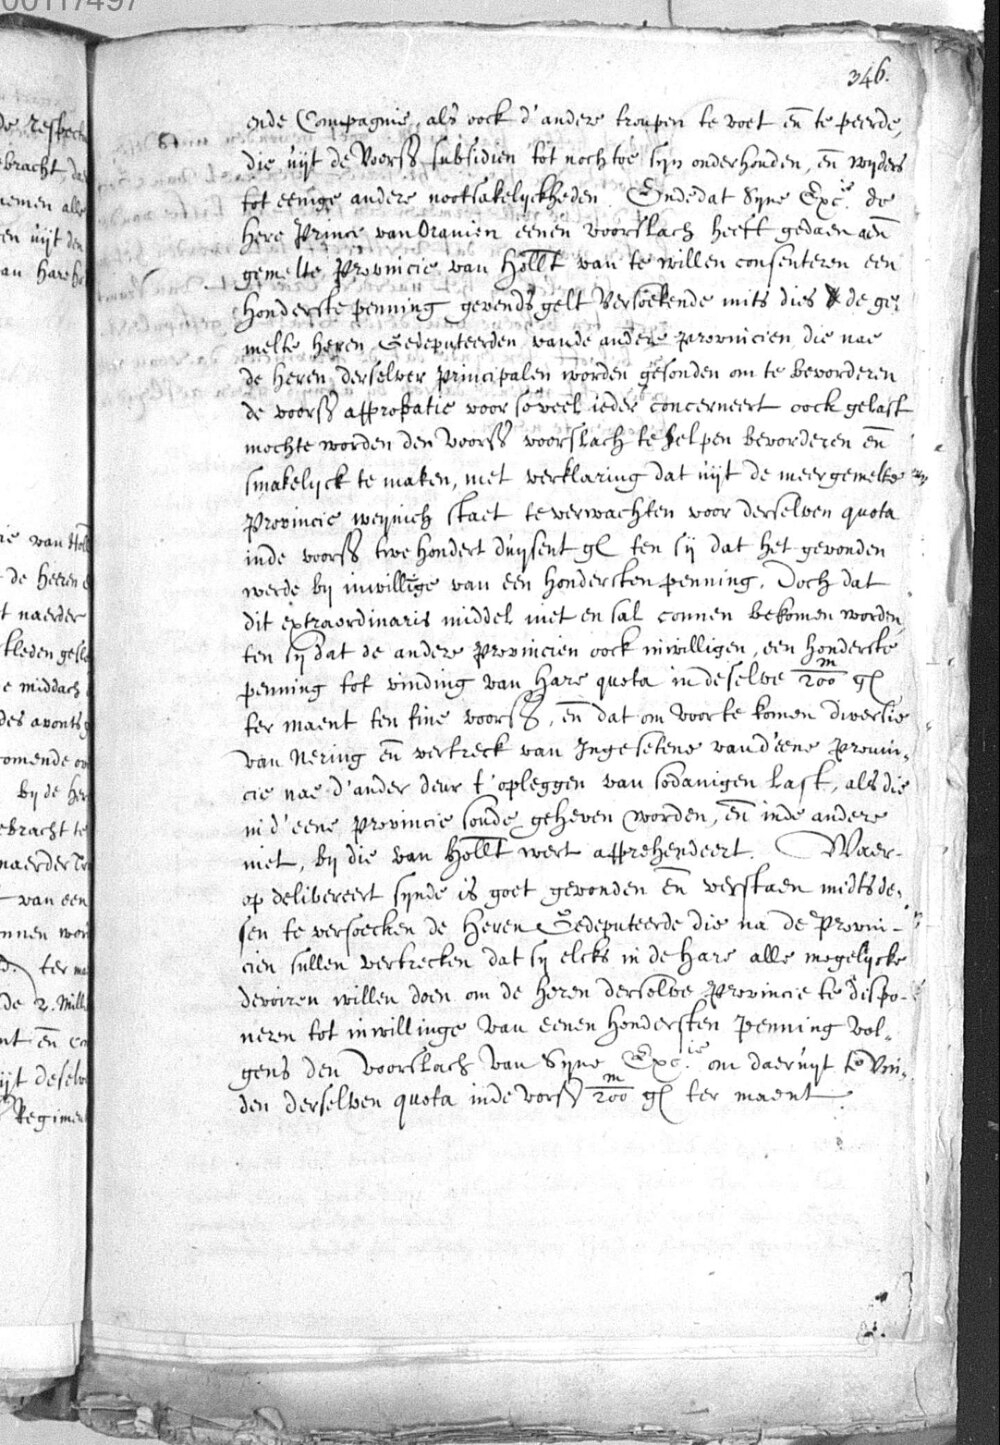 00117497
346.
de respect
ebracht, da
nemen alle
en uijt den
an hare hr
ie van Holl
de heeren
t naerder
kleden gesle
e middach
des avonts
comende
bij de her
ebracht te
naerder
van een
nnen wor
ter ma
de 2. Mill
nt en̄
ijt deselve
Regimen
ende Compagnie, als oock d'andere troupen te voet en̄ te peerde,
die uijt de voorsz subsidien tot noch toe sijn onderhouden, en̄ wijders
tot eenige andere nootsakelijckheden. Ende dat Syne Excie. de
here Prince van Oranien eenen voorslach heeft gedaen aen
gemelte Provincie van Hollt van te willen consenteren een
honderste penning gevends gelt versoekende mits dies de ge,
melte heren Gedeputeerden vande andere provincien, die nae
de heren derselver principalen worden gesonden om te bevorderen
de voorsz approbatie voor soveel ieder concerneert oock gelast
mochte worden den voorsz voorslach te helpen bevorderen en̄
smakelijck te maken, met verklaring dat uijt de meergemelte
Provincie weijnich staet te verwachten voor derselven quota
inde voorsz twe hondert duijsent gl ten sij dat het gevonden
werde bij inwillige van een hondersten penning. Doch dat
dit extraordinaris middel niet en sal connen bekomen worden,
ten sij dat de andere Provincien oock inwilligen, een honderste
penning tot vinding van hare quota in deselve 200 m gl
ter maent ten fine voorsz, en̄ dat om voor te komen diversie
van Nering en̄ vertreck van Ingesetene van d'eene Provin,
cie nae d'ander deur t'opleggen van sodanigen last, als die
in d'eene Provincie soude geheven worden, en̄ inde andere
niet, bij die van Hollt wert apprehendeert. Waer-
op delibereert synde is goet gevonden en̄ verstaen midts de,
sen te versoecken de Heren Gedeputeerde die na de Provin-
cien sullen vertrecken dat sij elcks in de hare alle mogelijcke
devoiren willen doen om de heren derselve Provincie te dispo-
neren tot inwillinge van eenen hondersten Penning vol-
gens den voorslach van Syne Excie. om daeruijt te vin,
den derselven quota inde vorsz 200 m gl ter maent.